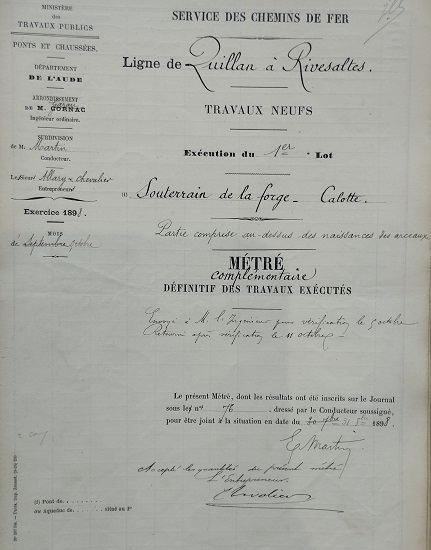 MINISTÈRE
DES
TRAVAUX PUBLICS
PONTS ET CHAUSSÉES
DÉPARTEMENT
DE L'AUDE
ARRONDISSEMENT
DE M. GORNAC
Ingénieur ordinaire.
SUBDIVISION
de M. Martin
Conducteur.
Les Sieurs Allary & Chevalier
Entrepreneurs
Exercice 1898.
MOIS
de Septembre octobre
SERVICE DES CHEMINS DE FER
Ligne de Quillan à Rivesaltes.
TRAVAUX NEUFS
Exécution du 1er Lot
(1) Souterrain de la forge - Calotte.
Partie comprise au-dessus des naissances des arceaux
MÉTRÉ
complémentaire
DÉFINITIF DES TRAVAUX EXÉCUTÉS
Envoyé à M. l'Ingénieur pour vérification le 5 octobre
Retourné après vérification le 11 octobre
Le présent Métré, dont les résultats ont été inscrits sur le Journal
sous le nº 76 dressé par le Conducteur soussigné,
pour être joint à la situation en date du 30 7bre 31 8bre 1898.
E. Martin
Accepté les quantités du présent métré
L'Entrepreneur
Chevalier
(1) Pont de
ou Aqueduc de situé au Pt